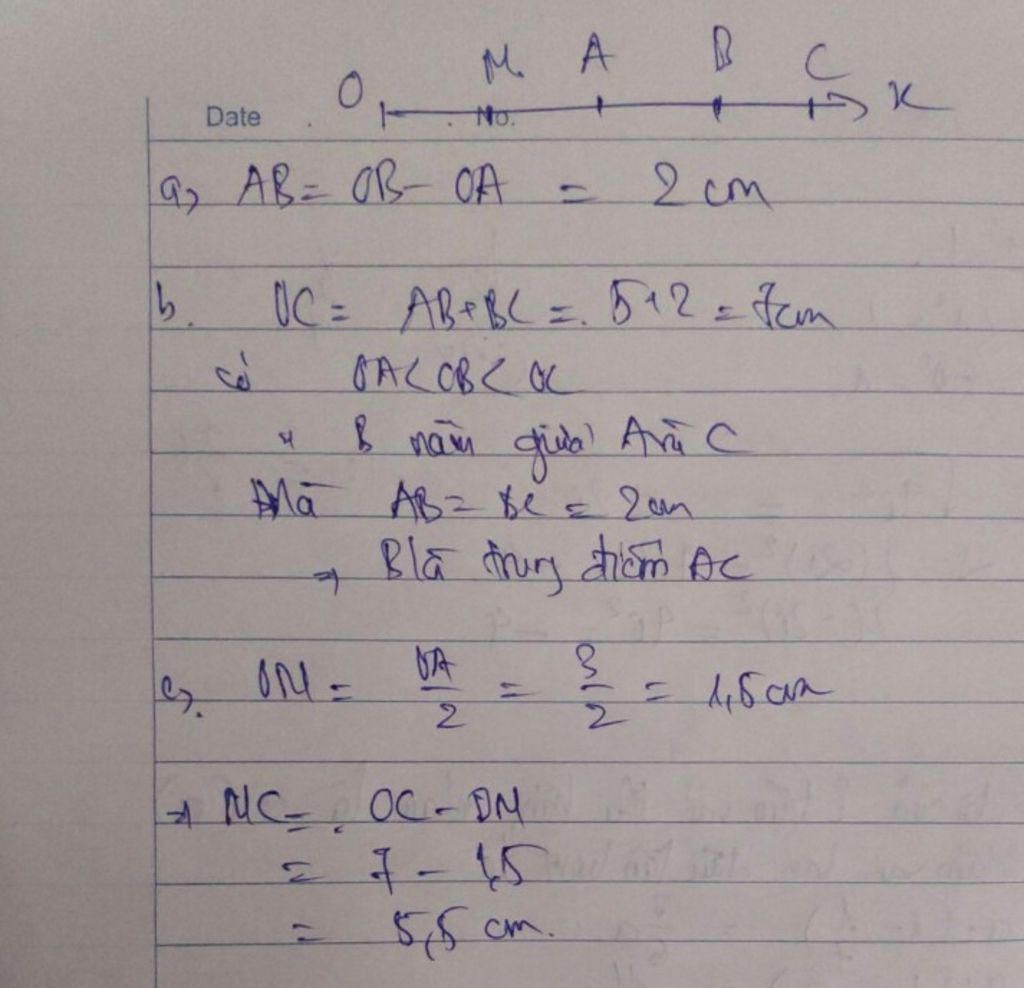 O M A B C x
Date No.
a) AB = OB - OA = 2 cm
b. OC = AB + BC = 5 + 2 = 7 cm
có OA < OB < OC
B nằm giữa A và C
Mà AB = BC = 2 cm
⇒ B là trung điểm AC
c). OM = OA/2 = 3/2 = 1,5 cm
⇒ MC = OC - OM
= 7 - 1,5
= 5,5 cm.